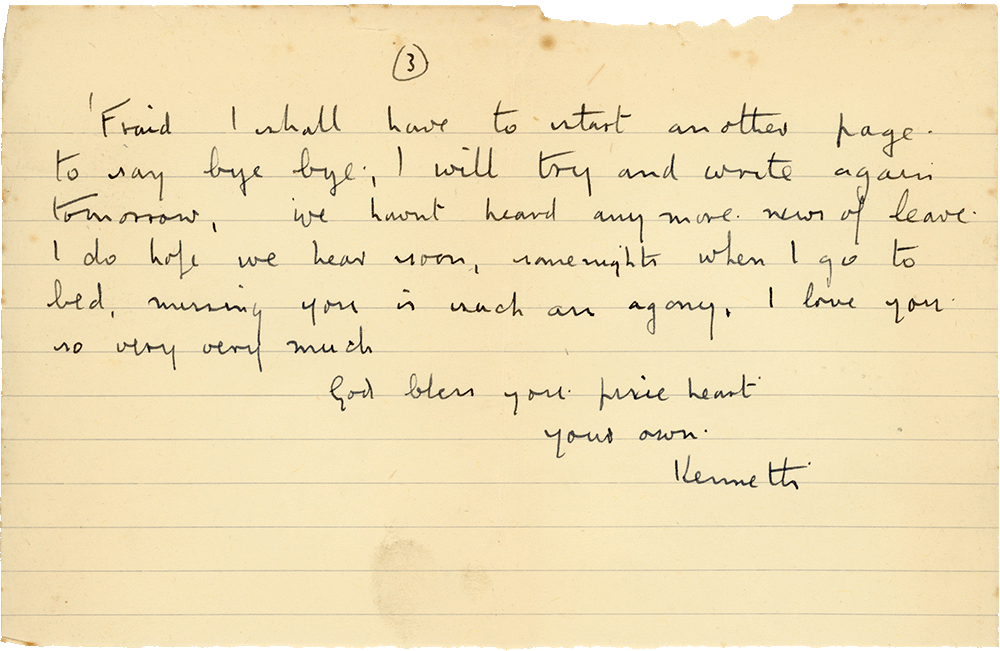 3
'Fraid I shall have to start another page.
to say bye bye., I will try and write again
tomorrow, we havnt heard any more. news of leave.
I do hope we hear soon, somenights when I go to
bed, missing you is such an agony, I love you.
so very very much
God bless you. pixie heart
your own.
Kenneth